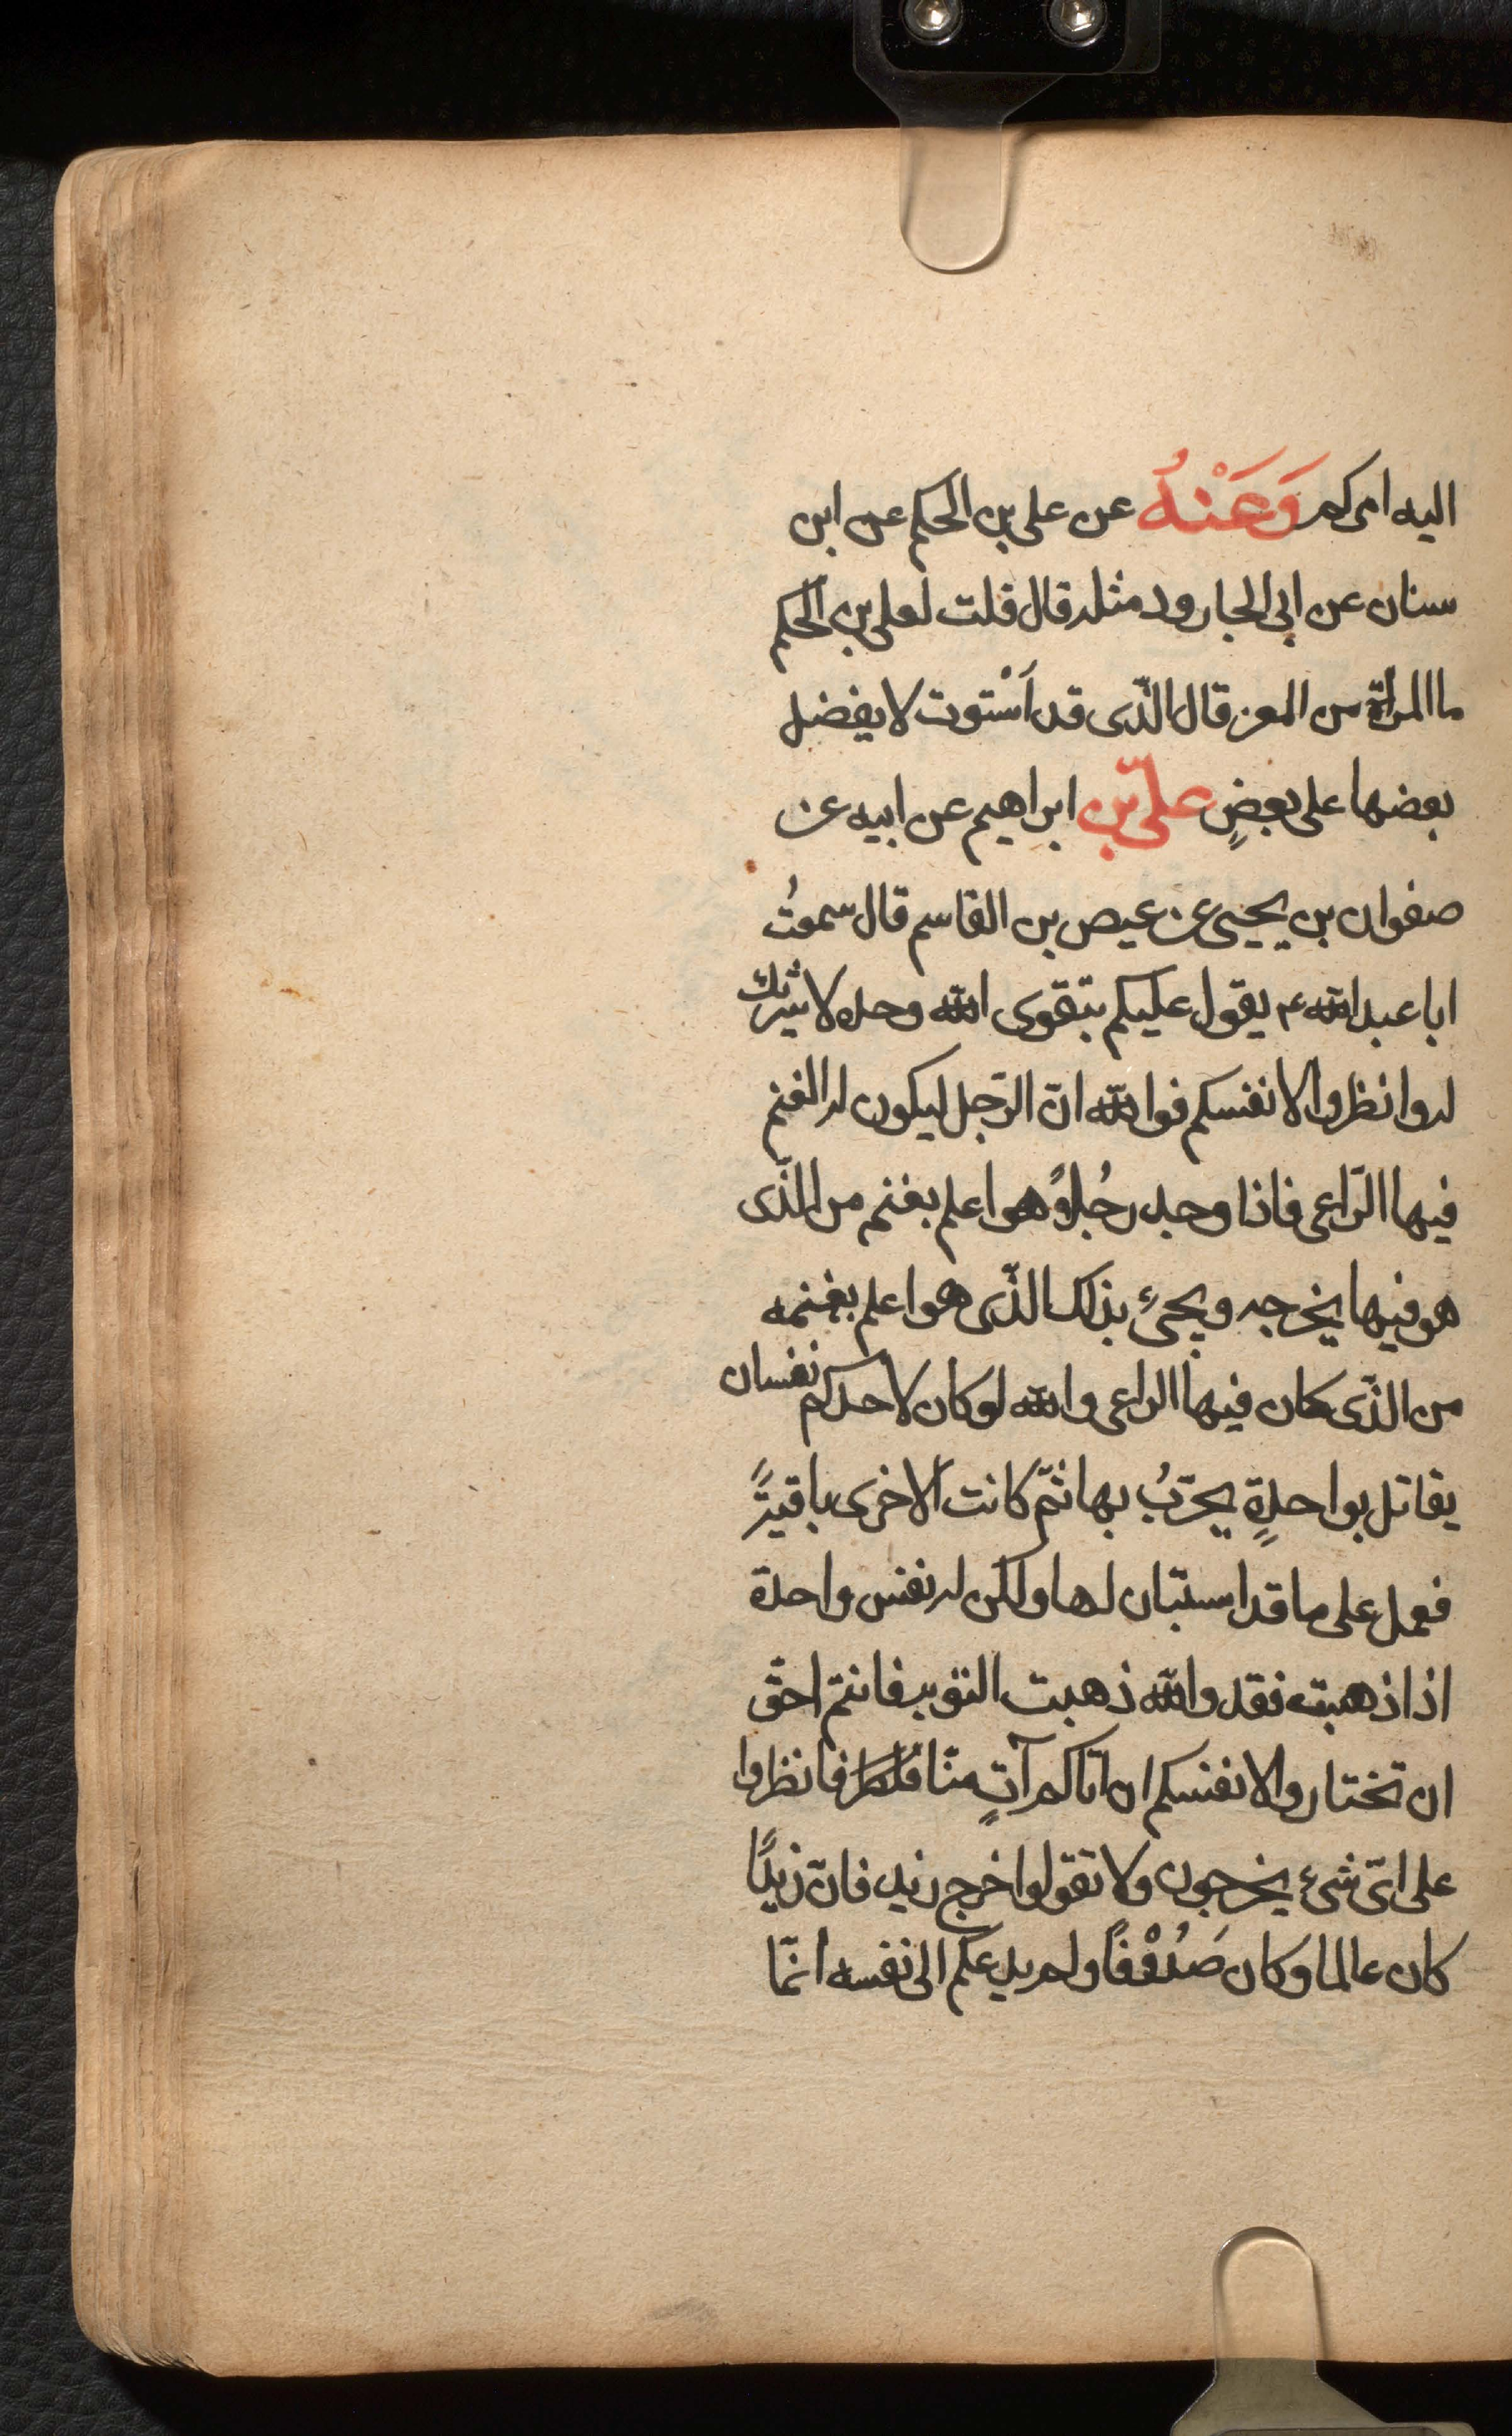 اليه امركم وَعَنْهُ عن على بن الحكم عن ابن
سنان عن ابى الجارود مثله قال قلت لعلى بن الحكم
ما المرأة من المعز قال الذّى قد اَسْتوت لا يفضل
بعضها على بعضٍ علىّ بن ابراهيم عن ابيه عن
صفوان بن يحيى عن عيص بن القاسم قال سمعتُ
ابا عبد الله ء يقول عليكم بتقوى الله وحده لا شريك
له وانظروا لانفسكم فوالله انّ الرّجل ليكون له الغنم
فيها الرّاعى فاذا وجد رجُلاً هو اعلم بغنم من الذّى
هو فيها يخرجه ويجئ بذلك الذّى هو اعلم بغنمه
من الذّى كان فيها الراعى والله لو كان لاحدكم نفسان
يقاتل بواحدةٍ يجرّبُ بها ثمّ كانت الاخرى باقيةً
فعمل على ما قد استبان لها ولكن له نفس واحدة
اذا ذهبت فقد والله ذهبت التوبه فانتم احقّ
ان تختاروا لانفسكم ان اتاكم آتٍ منّا فانظروا
على اىّ شئ يخرجون ولا تقولوا خرج زيد فانّ زيدًا
كان عالما وكان صَدُوْقًا ولم يدعكم الى نفسه انمّا